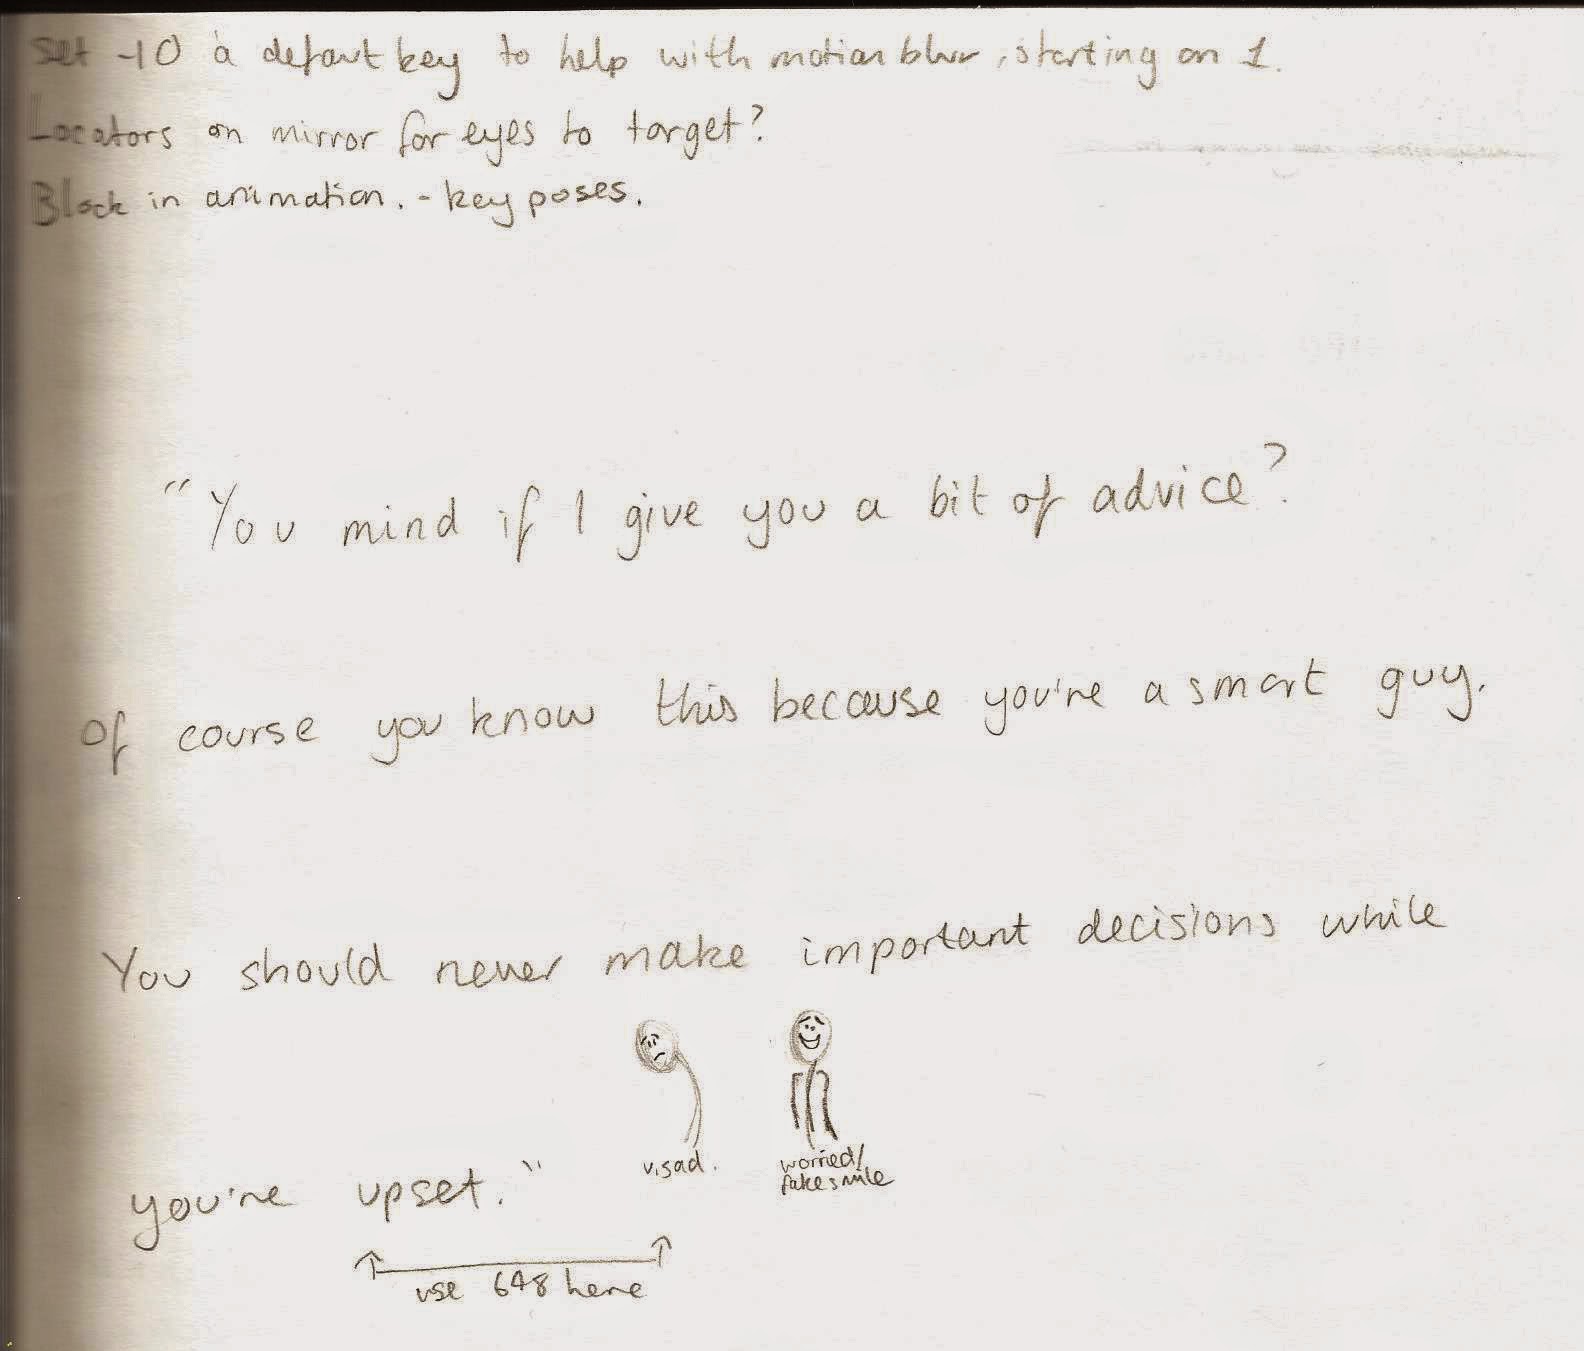 Set -10 a defaut key to help with motion blur, starting on 1.
Locators on mirror for eyes to target?
Block in animation. - key poses.
"You mind if I give you a bit of advice?
Of course you know this because you're a smart guy.
You should never make important decisions while
you're upset."
v.sad.
worried/
fake smile
use 648 here